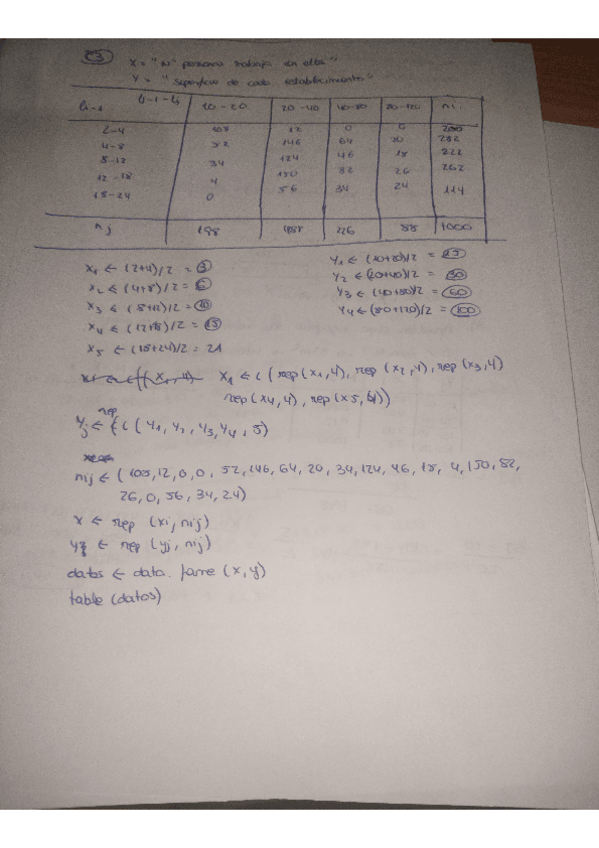 E3
X = "Nº personas trabaja en ellas"
Y = "Superficie de cada establecimiento"
10-20 20-40 40-80 80-120 ni.
2-4 108 12 0 0
4-8 52 146 64 20 282
8-12 34 124 46 18 222
12-18 4 150 82 26 262
18-24 0 56 34 24 114
nj 198 488 226 88 1000
x1 ← (2+4)/2 = 3
x2 ← (4+8)/2 = 6
x3 ← (8+12)/2 = 10
x4 ← (12+18)/2 = 15
x5 ← (18+24)/2 = 21
y1 ← (10+20)/2 = 15
y2 ← (20+40)/2 = 30
y3 ← (40+80)/2 = 60
y4 ← (80+120)/2 = 100
xi ← c(rep(x1,4), rep(x2,4), rep(x3,4)
rep(x4,4), rep(x5,4))
rep
yj ← (c(y1, y2, y3, y4, 5)
nij ← (108,12,0,0, 52,146,64,20,34,124,46,18, 4,150,82,
26,0,56,34,24)
x ← rep (xi, nij)
y ← rep (yj, nij)
datos ← data.fame (x,y)
table (datos)